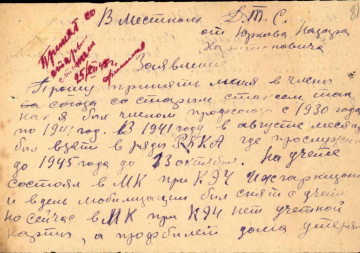 В Местком Д.Т.С.
от Юркова Назара
Харитоновича
Принят со
стажем
25/XII 48г.
Заявление
Прошу принять меня в члены
союза со старым стажем так
как я был членом профсоюза с 1930 года
по 1941 год. В 1941 году в августе месяце
был взят в ряды РККА где прослужил
до 1945 года до 23 октября. На учете
состоял в МК при КЭЧ
и в день мобилизации был снят с учета
но сейчас в МК при КЭЧ нет учетной
карты, а профбилет дома утерян